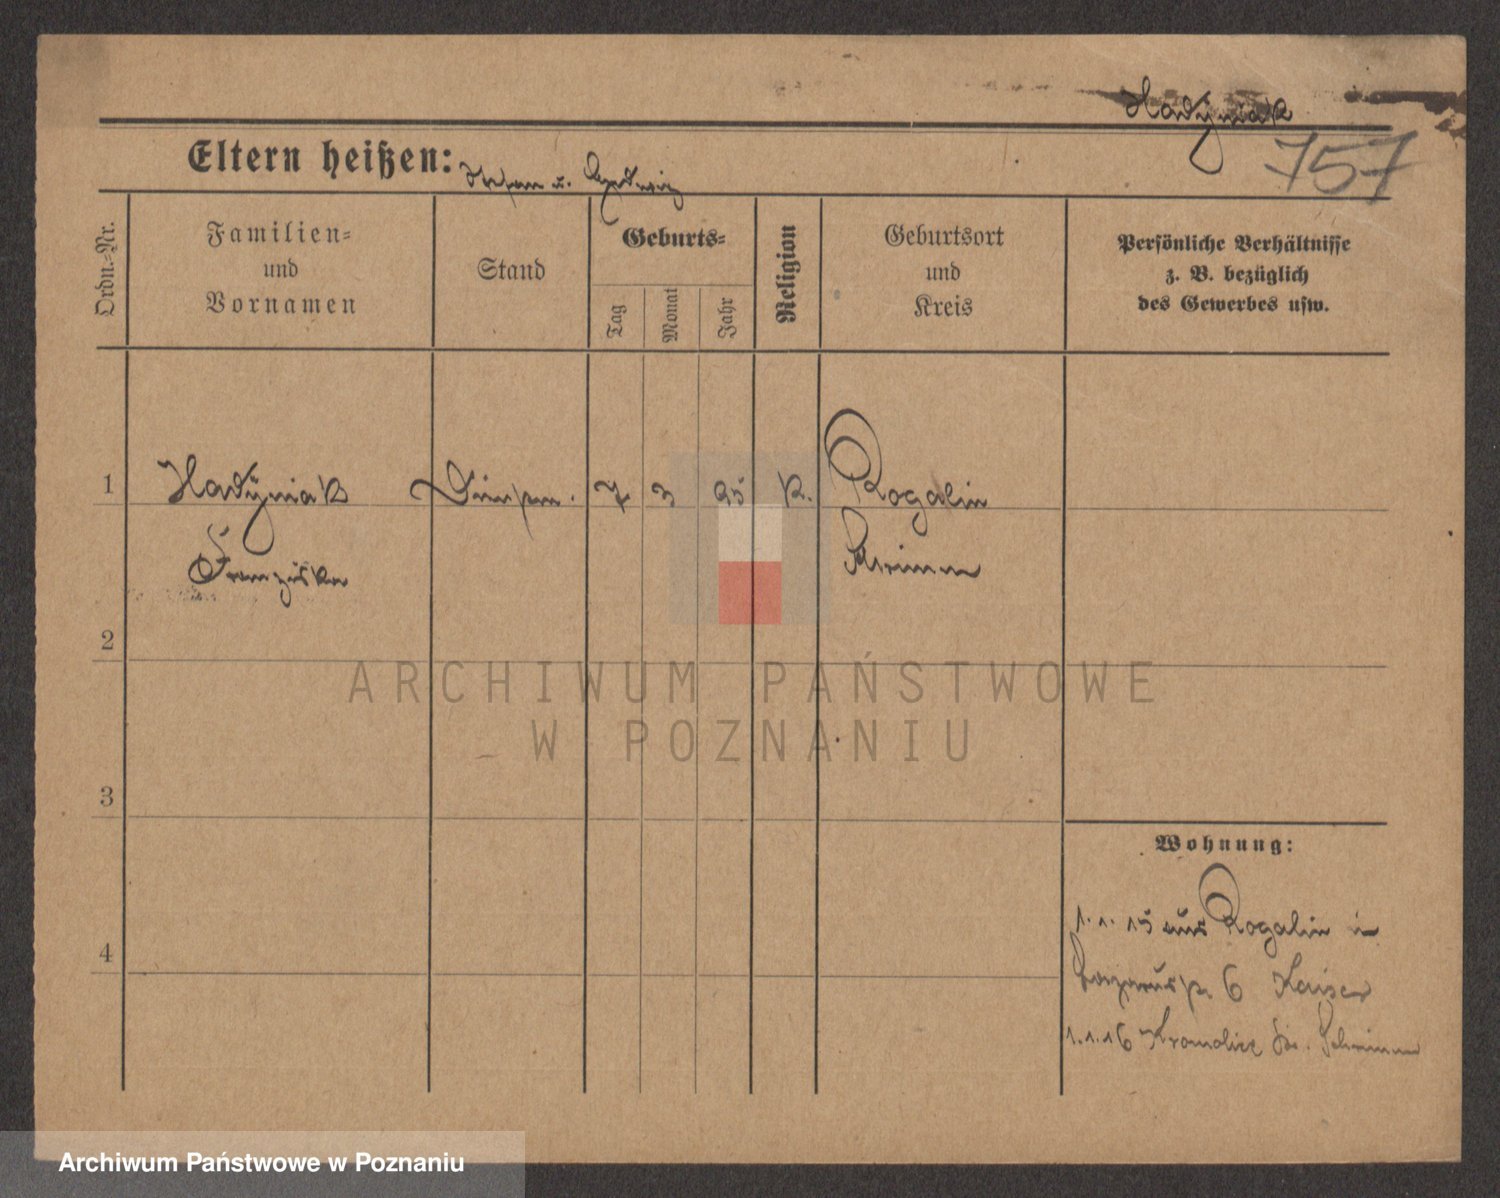 Hadyniak
757
Eltern heißen: Stefan u. Hedwig
Ordn.-Nr.
Familien-
und
Vornamen
Stand
Geburts-
Tag
Monat
Jahr
Religion
Geburtsort
und
Kreis
Persönliche Verhältnisse
z. B. bezüglich
des Gewerbes usw.
1 Hadyniak 7 3 95 K. Rogalin
Franziska Schrimm
2
ARCHIWUM PAŃSTWOWE
W POZNANIU
3
Wohnung:
1.1.15 aus Rogalin in
4
Lazarusstr. 6 Kaiser
1.1.16 Kr. Schrimm
Archiwum Państwowe w Poznaniu